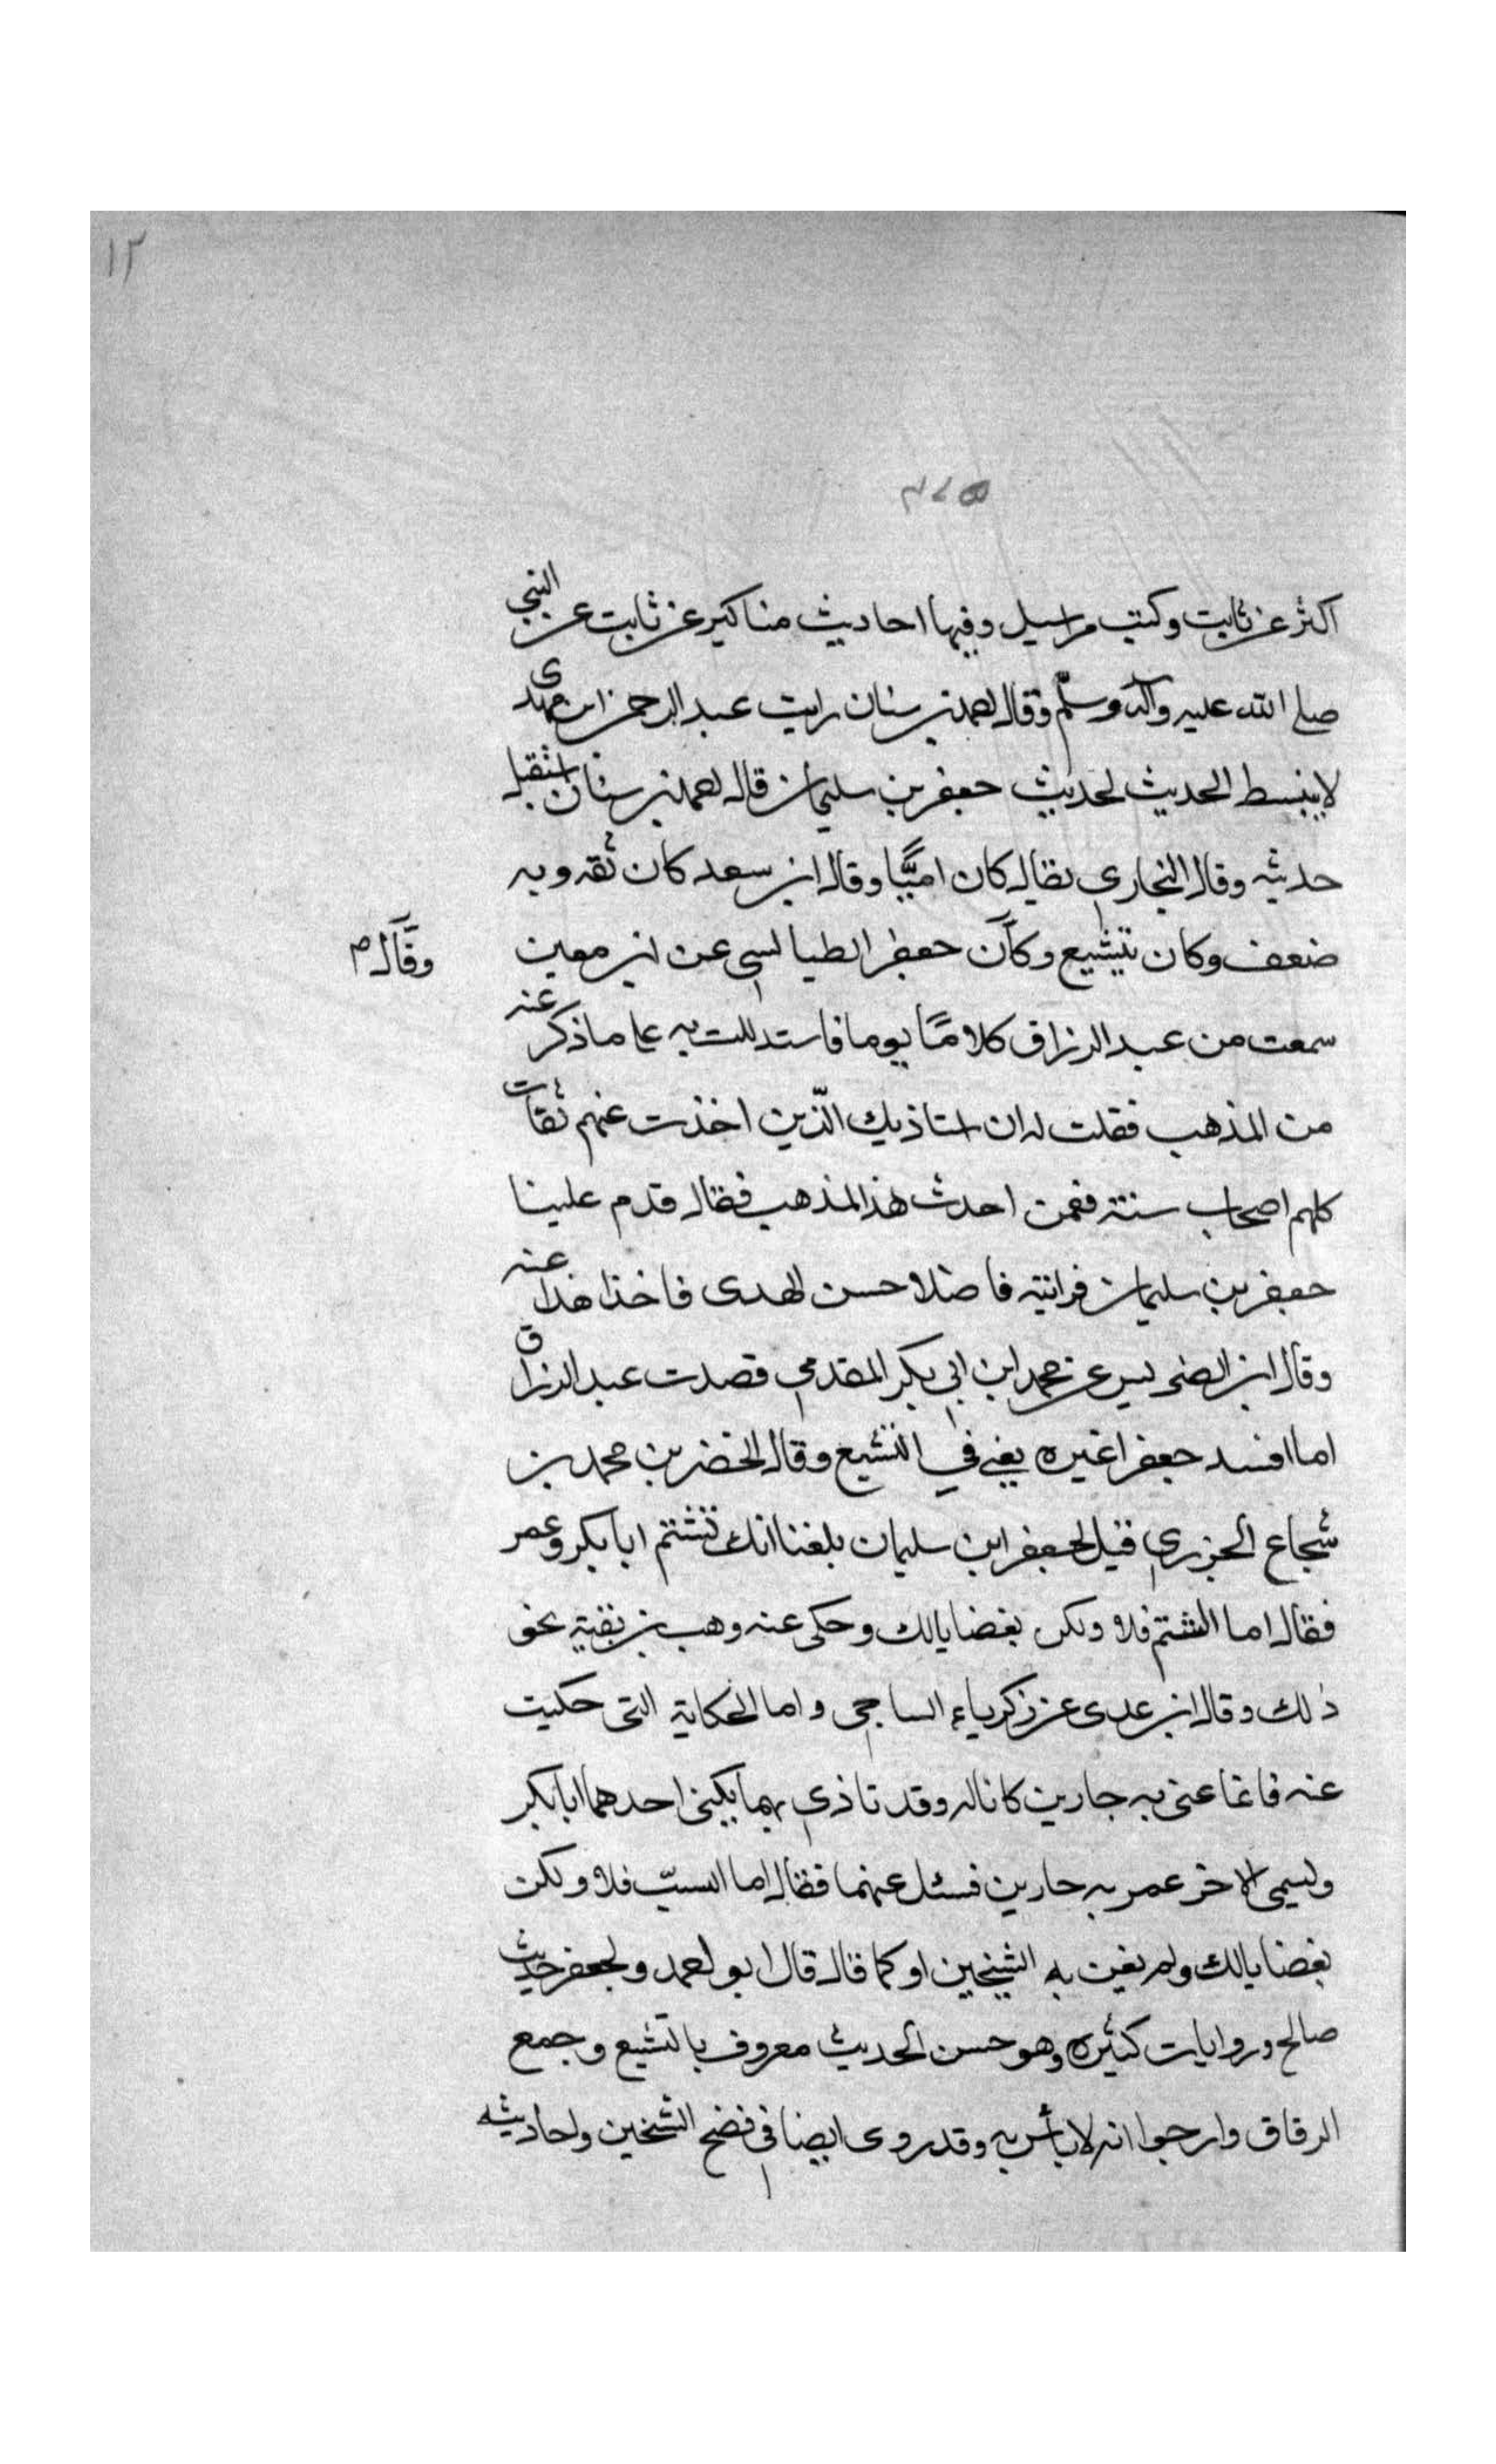 ١٢
اكثر عن ثابت وكتب مراسيل وفيها احاديث مناكير عن ثابت عن النبي
صلى الله عليه وآله وسلّم وقال احمد بن سنان رايت عبد الرحمن ابن مهدى
لا ينبسط الحديث لحديث جعفر بن سليمان قال احمد بن سنان استثقل
حديثه وقال البخاري يقال كان اميًّا وقال ابن سعد كان ثقه وبه
ضعف وكان يتشيع وكان جعفر الطيالسي عن ابن معين
وقال م
سمعت من عبد الرزاق كلامًا يوما فاستدللت به على ما ذكر عنه
من المذهب فقلت له ان استاذيك الّذين اخذت عنهم ثقات
كلهم اصحاب سنته فممن احدث هذا المذهب فقال قدم علينا
جعفر بن سليمان فرايته فاضلا حسن الهدى فاخذ هذا عنه
وقال ابن الضريس عن محمد ابن ابي بكر المقدمي قصدت عبد الرزاق
اما افسد جعفرا غيره يعني في التشيع وقال الخضر بن محمد بن
شجاع الجزري قيل لجعفر ابن سليمان بلغنا انك تشتم ابا بكر وعمر
فقال اما الشتم فلا ولكن بغضا يالك وحكى عنه وهب بن بقية نحو
ذلك وقال ابن عدى عن زكرياء الساجي واما الحكاية التى حكيت
عنه فانما عنى به جارين كانا له وقد تاذي بهما يكنى احدهما ابا بكر
ويسمى الاخر عمر به جارين فسئل عنهما فقال اما السبّ فلا ولكن
بغضا يالك ولم يعين به الشيخين او كما قال قال ابو احمد ولجعفر حديث
صالح وروايات كثيره وهو حسن الحديث معروف بالتشيع وجمع
الرقاق وارجوا انه لا بأس به وقد روى ايضا في فضح الشيخين واحاديثه